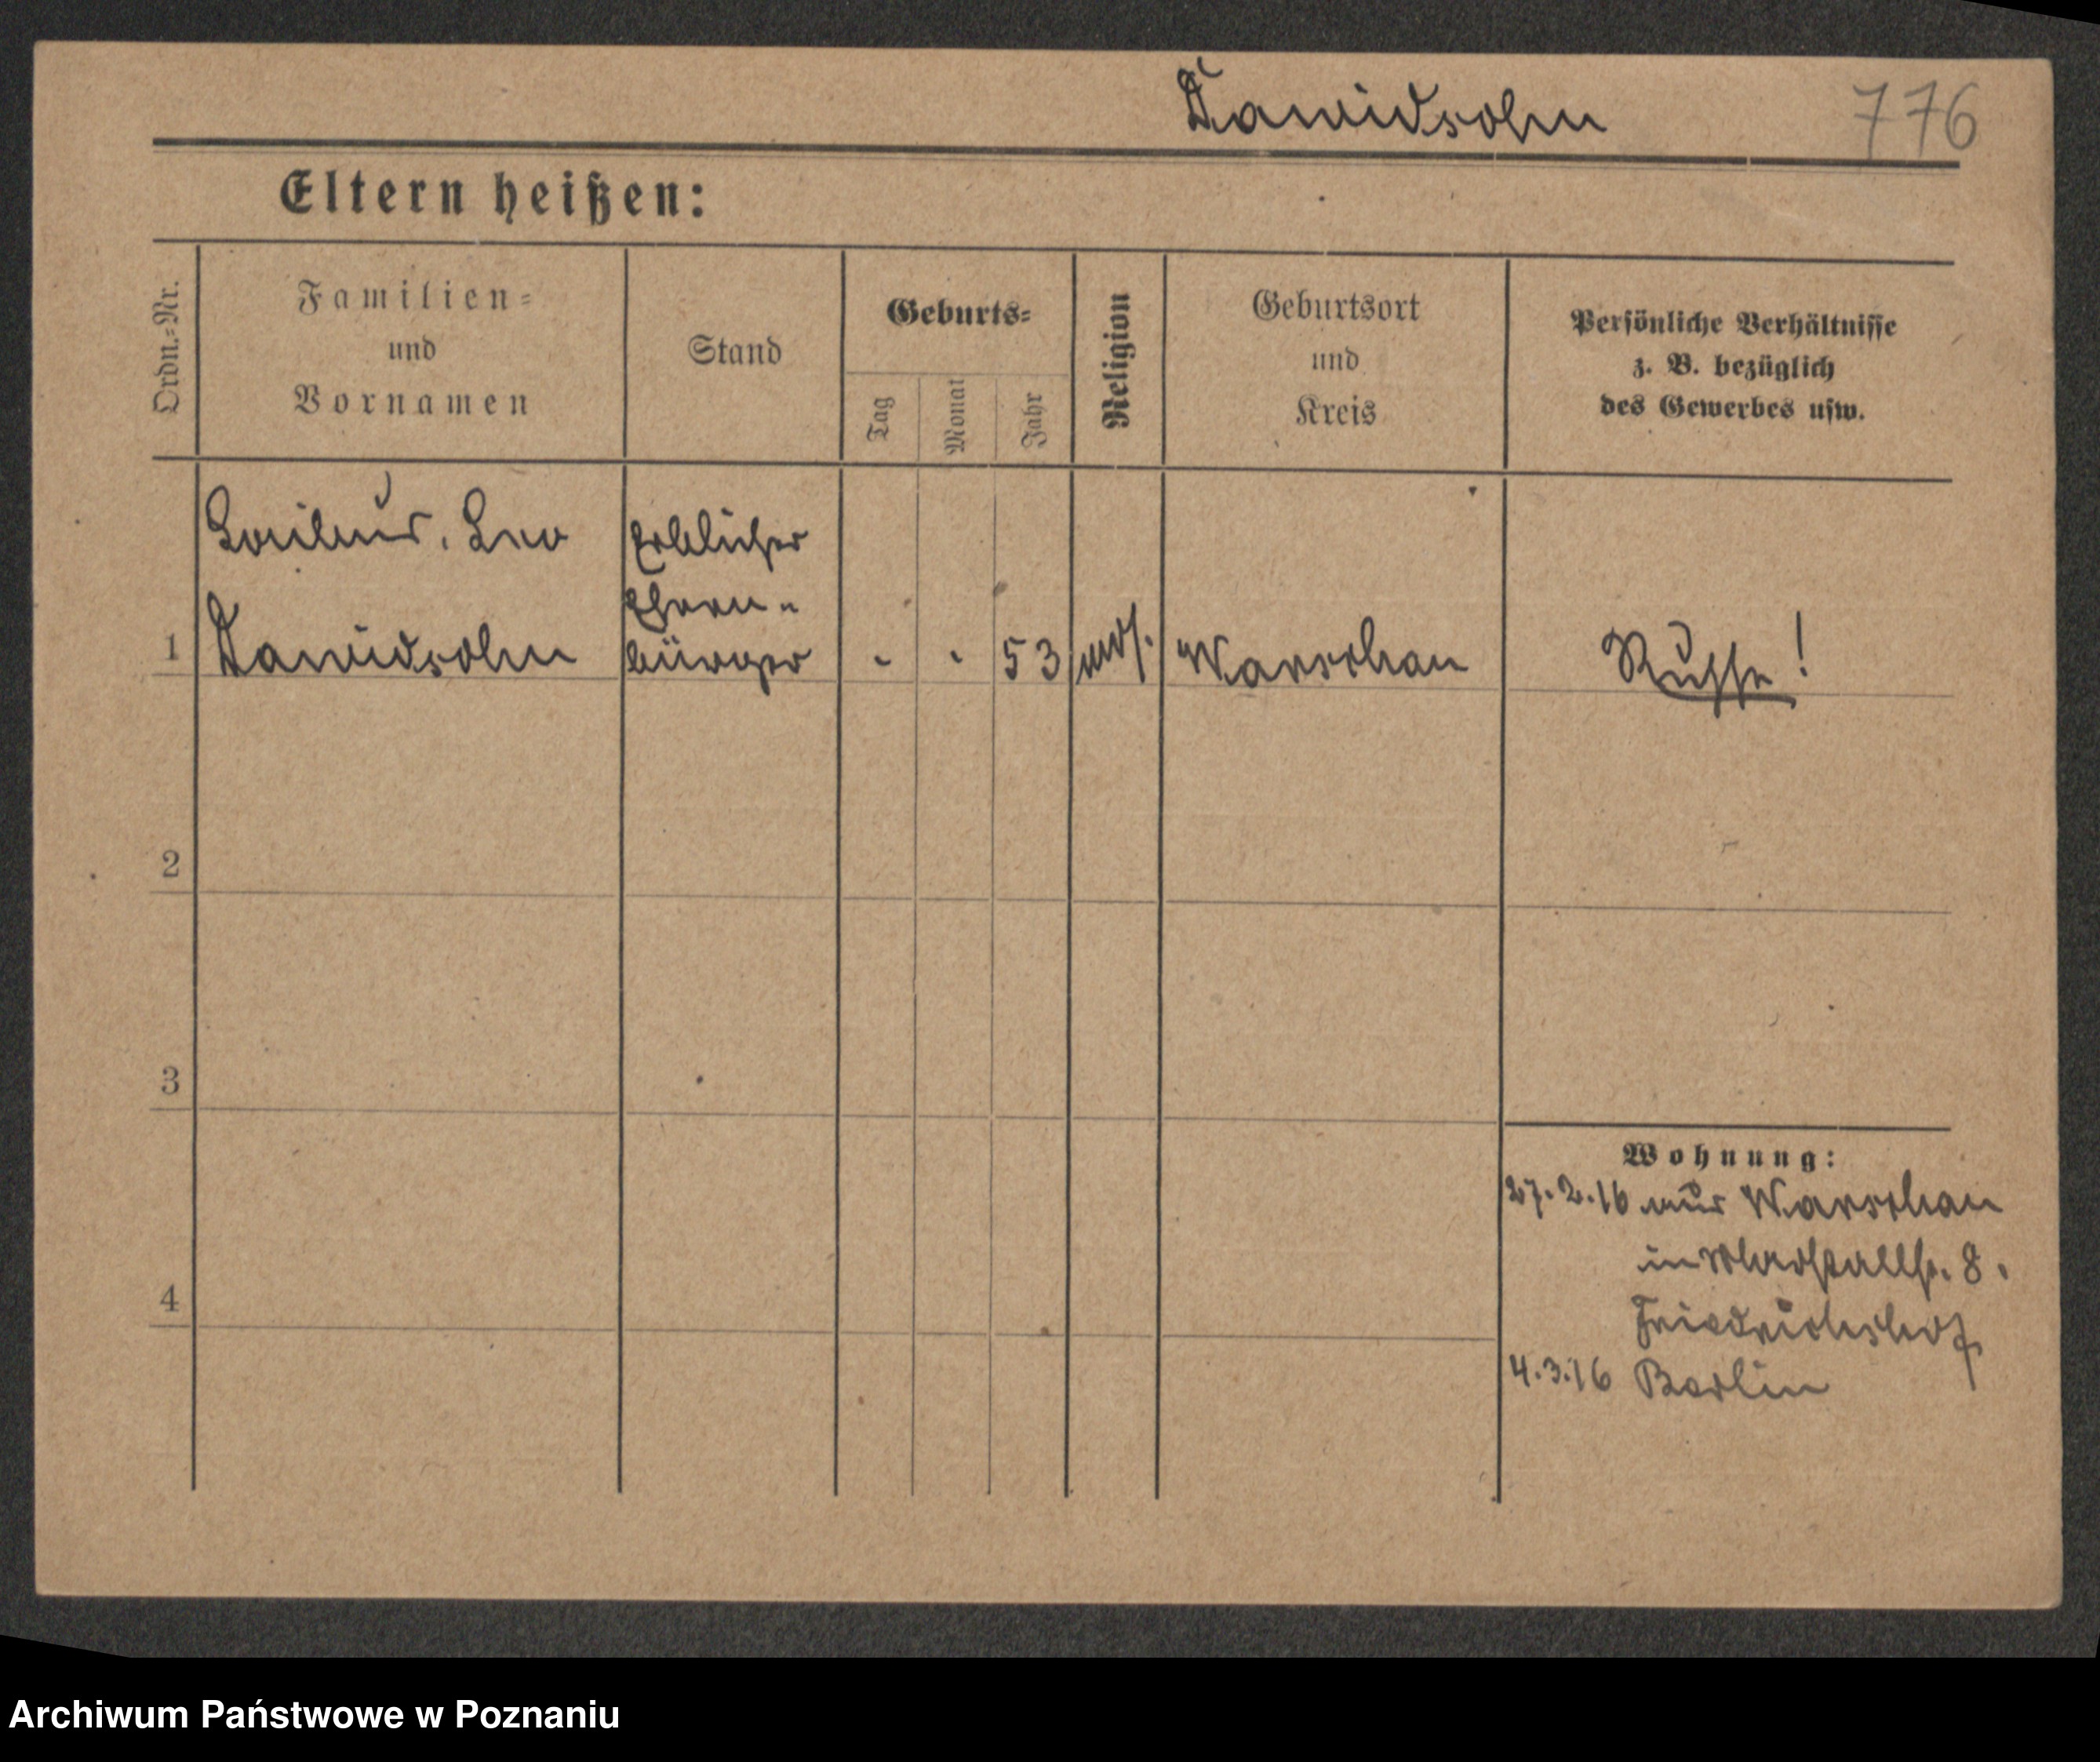 Dawidsohn 776
Eltern heißen:
Ordn.-Nr.
Familien-
und
Vornamen
Stand
Geburts-
Tag
Monat
Jahr
Religion
Geburtsort
und
Kreis
Persönliche Verhältnisse
z. B. bezüglich
des Gewerbes usw.
Leo
Dawidsohn
Erblicher
Ehren-
bürger
1 - - 53 mos. Warschau Russe!
2
3
4
Wohnung:
27.2.16 aus Warschau
in Marstallstr. 8.
Friedrichshof
4.3.16 Berlin
Archiwum Państwowe w Poznaniu